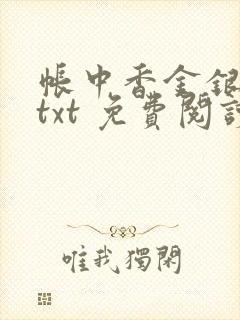 帳中香金銀
txt 免費閱讀
唯我獨閑